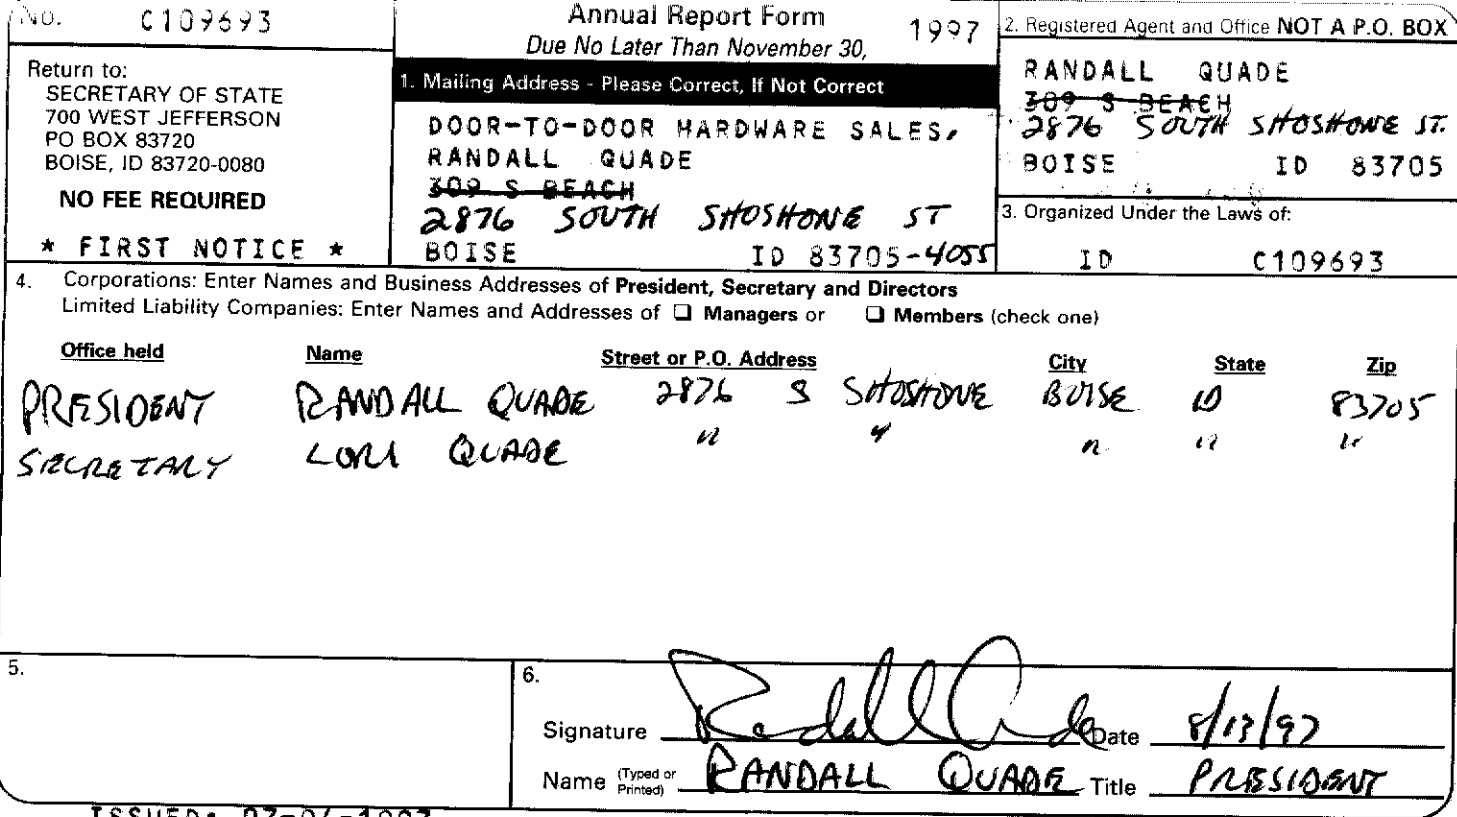 NO. C109693
Annual Report Form 1997
Due No Later Than November 30,
Return to:
SECRETARY OF STATE
700 WEST JEFFERSON
PO BOX 83720
BOISE, ID 83720-0080
NO FEE REQUIRED
* FIRST NOTICE *
1. Mailing Address - Please Correct, If Not Correct
DOOR-TO-DOOR HARDWARE SALES,
RANDALL QUADE
309 S BEACH
2876 SOUTH SHOSHONE ST
BOISE ID 83705-4055
2. Registered Agent and Office NOT A P.O. BOX
RANDALL QUADE
309 S BEACH
2876 SOUTH SHOSHONE ST.
BOISE ID 83705
3. Organized Under the Laws of:
ID C109693
4. Corporations: Enter Names and Business Addresses of President, Secretary and Directors
Limited Liability Companies: Enter Names and Addresses of ☐ Managers or ☐ Members (check one)
Office held Name Street or P.O. Address City State Zip
PRESIDENT RANDALL QUADE 2876 S SHOSHONE BOISE ID 83705
SECRETARY LORI QUADE " " " " "
5.
6.
Signature Randall Quade Date 8/13/97
Name (Typed or Printed) RANDALL QUADE Title PRESIDENT